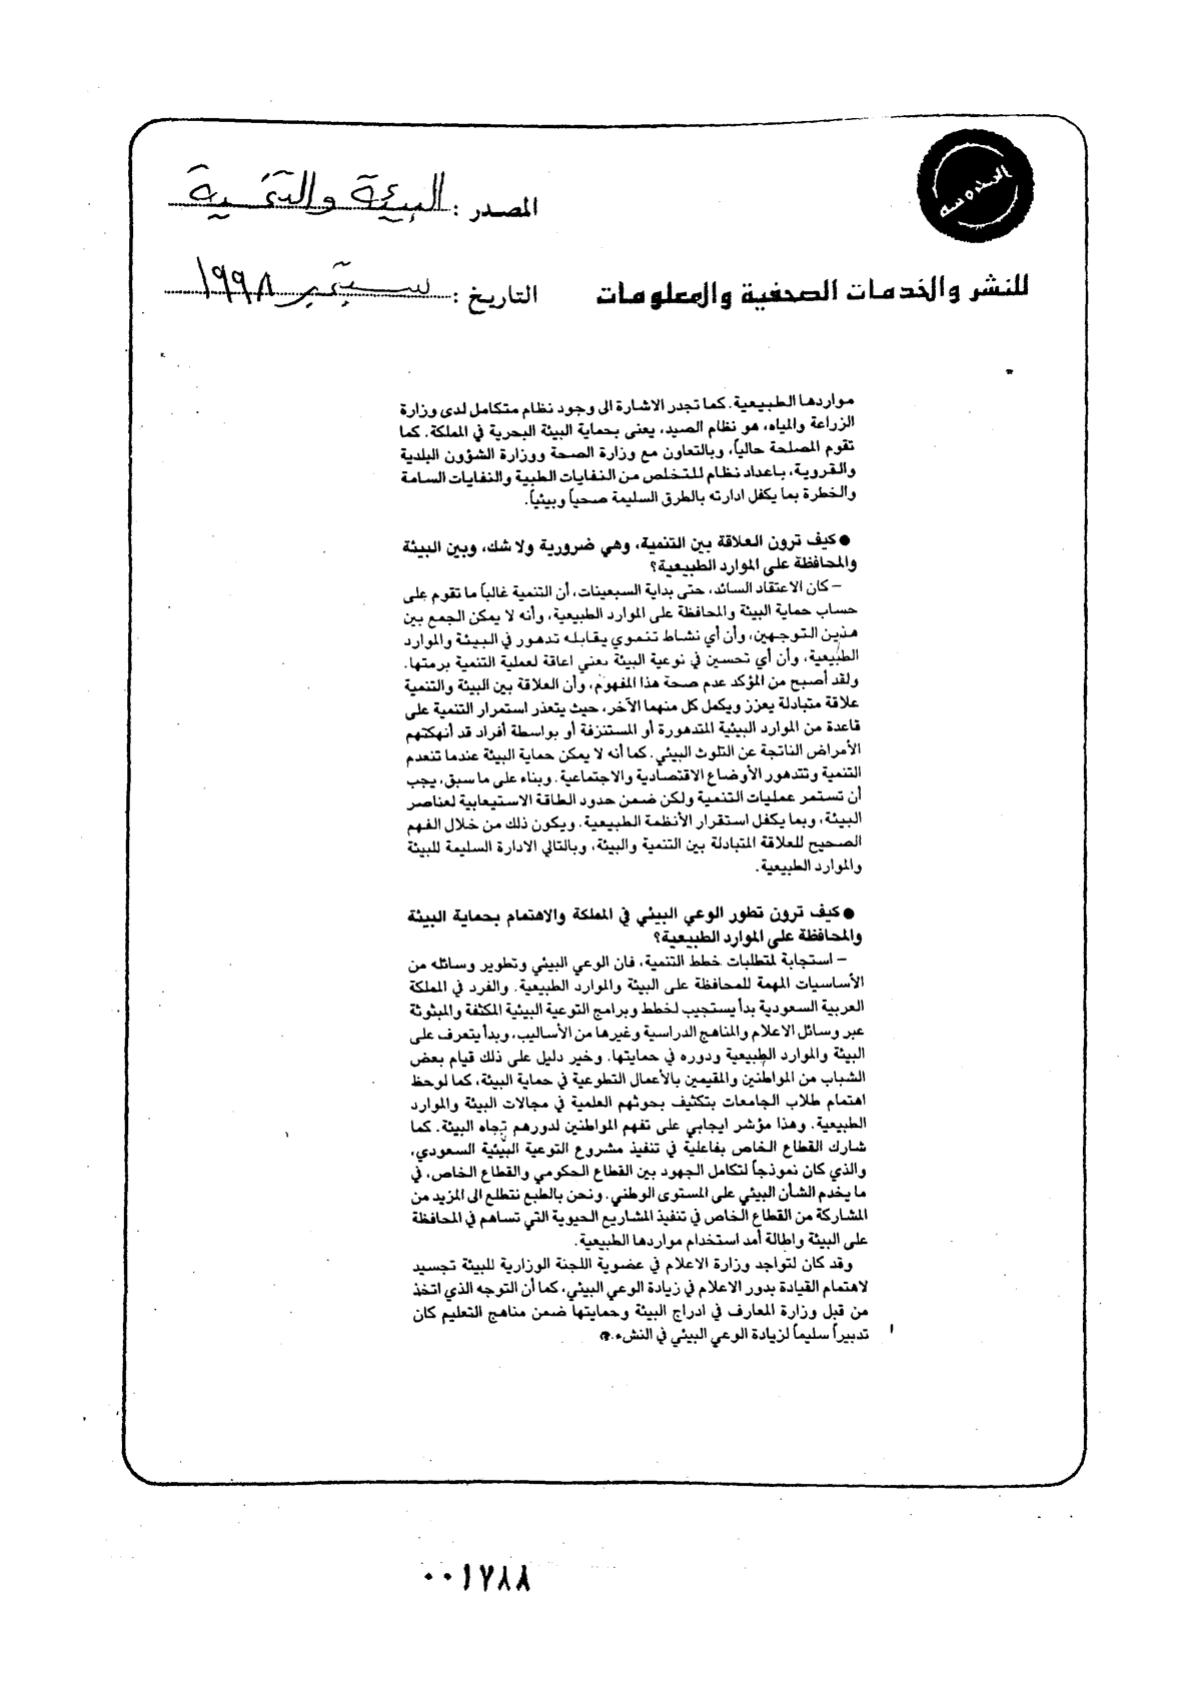 المصدر : البيئة والتنمية
للنشر والخدمات الصحفية والمعلومات
التاريخ : سبتمبر ١٩٩٨
مواردها الطبيعية. كما تجدر الاشارة الى وجود نظام متكامل لدى وزارة
الزراعة والمياه، هو نظام الصيد، يعنى بحماية البيئة البحرية في المملكة. كما
تقوم المصلحة حالياً، وبالتعاون مع وزارة الصحة ووزارة الشؤون البلدية
والقروية، باعداد نظام للتخلص من النفايات الطبية والنفايات السامة
والخطرة بما يكفل ادارته بالطرق السليمة صحياً وبيئياً.
● كيف ترون العلاقة بين التنمية، وهي ضرورية ولا شك، وبين البيئة
والمحافظة على الموارد الطبيعية؟
– كان الاعتقاد السائد، حتى بداية السبعينات، أن التنمية غالباً ما تقوم على
حساب حماية البيئة والمحافظة على الموارد الطبيعية، وأنه لا يمكن الجمع بين
هذين التوجهين، وأن أي نشاط تنموي يقابله تدهور في البيئة والموارد
الطبيعية، وأن أي تحسين في نوعية البيئة يعني اعاقة لعملية التنمية برمتها.
ولقد أصبح من المؤكد عدم صحة هذا المفهوم، وأن العلاقة بين البيئة والتنمية
علاقة متبادلة يعزز ويكمل كل منهما الآخر، حيث يتعذر استمرار التنمية على
قاعدة من الموارد البيئية المتدهورة أو المستنزفة أو بواسطة أفراد قد أنهكتهم
الأمراض الناتجة عن التلوث البيئي. كما أنه لا يمكن حماية البيئة عندما تنعدم
التنمية وتتدهور الأوضاع الاقتصادية والاجتماعية. وبناء على ما سبق، يجب
أن تستمر عمليات التنمية ولكن ضمن حدود الطاقة الاستيعابية لعناصر
البيئة، وبما يكفل استقرار الأنظمة الطبيعية. ويكون ذلك من خلال الفهم
الصحيح للعلاقة المتبادلة بين التنمية والبيئة، وبالتالي الادارة السليمة للبيئة
والموارد الطبيعية.
● كيف ترون تطور الوعي البيئي في المملكة والاهتمام بحماية البيئة
والمحافظة على الموارد الطبيعية؟
– استجابة لمتطلبات خطط التنمية، فان الوعي البيئي وتطوير وسائله من
الأساسيات المهمة للمحافظة على البيئة والموارد الطبيعية. والفرد في المملكة
العربية السعودية بدأ يستجيب لخطط وبرامج التوعية البيئية المكثفة والمبثوثة
عبر وسائل الاعلام والمناهج الدراسية وغيرها من الأساليب، وبدأ يتعرف على
البيئة والموارد الطبيعية ودوره في حمايتها. وخير دليل على ذلك قيام بعض
الشباب من المواطنين والمقيمين بالأعمال التطوعية في حماية البيئة، كما لوحظ
اهتمام طلاب الجامعات بتكثيف بحوثهم العلمية في مجالات البيئة والموارد
الطبيعية. وهذا مؤشر ايجابي على تفهم المواطنين لدورهم تجاه البيئة. كما
شارك القطاع الخاص بفاعلية في تنفيذ مشروع التوعية البيئية السعودي،
والذي كان نموذجاً لتكامل الجهود بين القطاع الحكومي والقطاع الخاص، في
ما يخدم الشأن البيئي على المستوى الوطني. ونحن بالطبع نتطلع الى المزيد من
المشاركة من القطاع الخاص في تنفيذ المشاريع الحيوية التي تساهم في المحافظة
على البيئة واطالة أمد استخدام مواردها الطبيعية.
وقد كان لتواجد وزارة الاعلام في عضوية اللجنة الوزارية للبيئة تجسيد
لاهتمام القيادة بدور الاعلام في زيادة الوعي البيئي، كما أن التوجه الذي اتخذ
من قبل وزارة المعارف في ادراج البيئة وحمايتها ضمن مناهج التعليم كان
تدبيراً سليماً لزيادة الوعي البيئي في النشء.
٠٠١٧٨٨